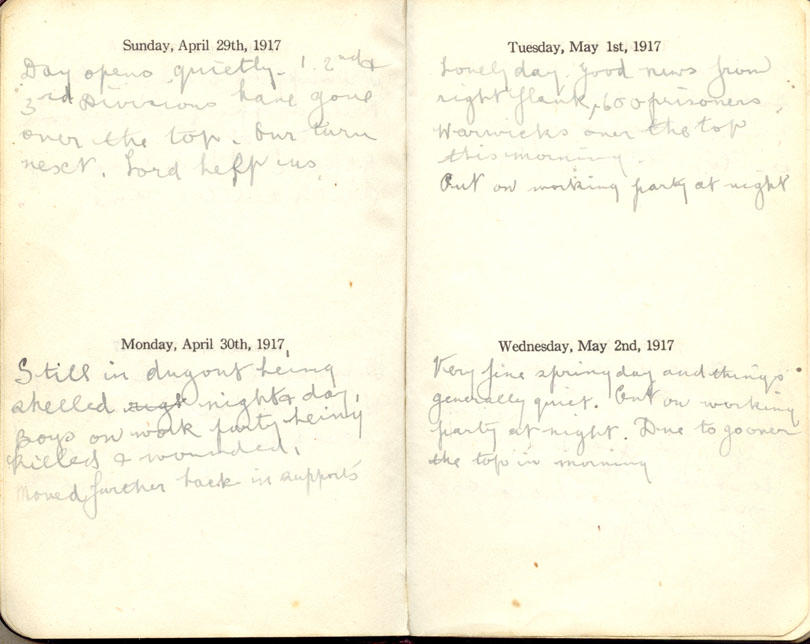 Sunday, April 29th, 1917
Day opens quietly. 1. 2nd &
3rd Divisions have gone
over the top. Our turn
next. Lord help us.
Monday, April 30th, 1917
Still in dugout being
shelled nigh night & day.
Boys on work party being
killed & wounded.
Moved further back in supports
Tuesday, May 1st, 1917
Lovely day. Good news from
right flank, 600 prisoners.
Warwicks over the top
this morning.
Out on working party at night
Wednesday, May 2nd, 1917
Very fine spring day and things
generally quiet. Out on working
party at night. Due to go over
the top in morning